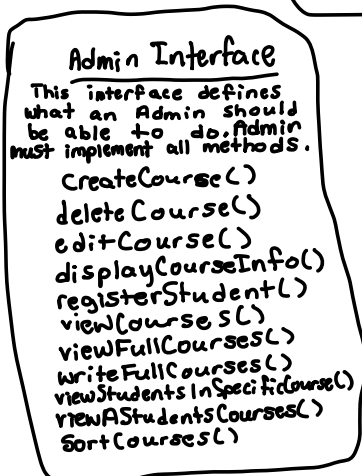 Admin Interface
This interface defines
what an Admin should
be able to do. Admin
must implement all methods.
createCourse()
deleteCourse()
editCourse()
displayCourseInfo()
registerStudent()
viewCourses()
viewFullCourses()
writeFullCourses()
viewStudentsInSpecificCourse()
viewAStudentsCourses()
SortCourses()